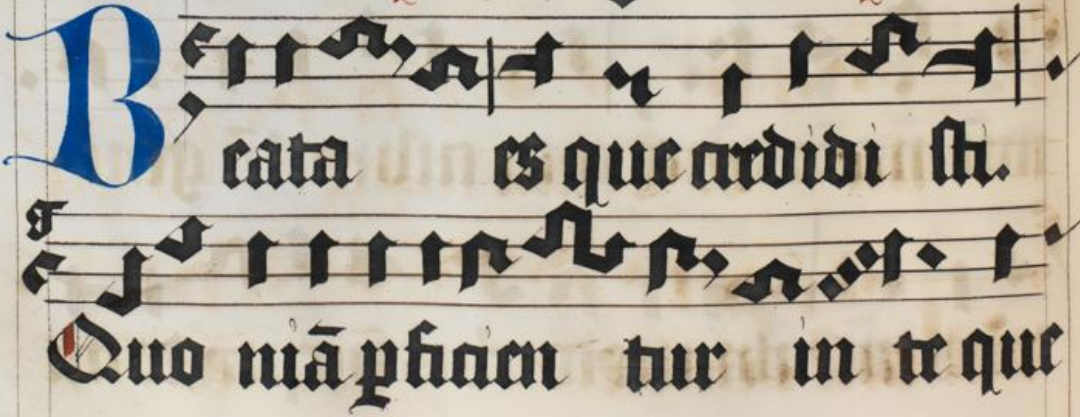 Beata es que credidi sti.
Quo niā ꝑficien tur in te que